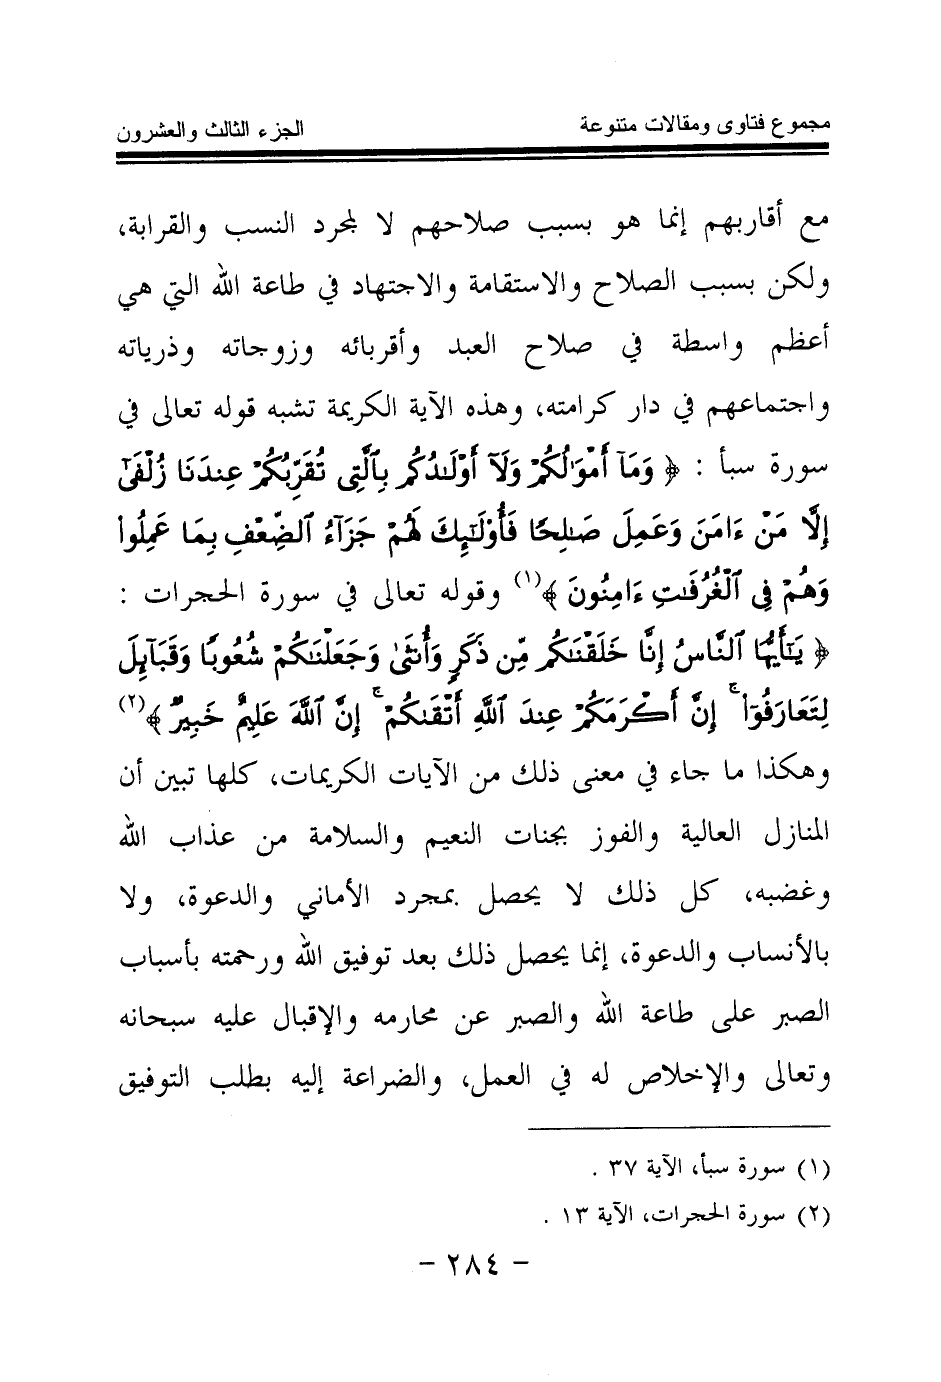 مجموع فتاوى ومقالات متنوعة الجزء الثالث والعشرون
مع أقاربهم إنما هو بسبب صلاحهم لا لمجرد النسب والقرابة،
ولكن بسبب الصلاح والاستقامة والاجتهاد في طاعة الله التي هي
أعظم واسطة في صلاح العبد وأقربائه وزوجاته وذرياته
واجتماعهم في دار كرامته، وهذه الآية الكريمة تشبه قوله تعالى في
سورة سبأ : ﴿ وَمَآ أَمْوَٰلُكُمْ وَلَآ أَوْلَـٰدُكُم بِٱلَّتِى تُقَرِّبُكُمْ عِندَنَا زُلْفَىٰٓ
إِلَّا مَنْ ءَامَنَ وَعَمِلَ صَـٰلِحًا فَأُو۟لَـٰٓئِكَ لَهُمْ جَزَآءُ ٱلضِّعْفِ بِمَا عَمِلُوا۟
وَهُمْ فِى ٱلْغُرُفَـٰتِ ءَامِنُونَ ﴾(١) وقوله تعالى في سورة الحجرات :
﴿ يَـٰٓأَيُّهَا ٱلنَّاسُ إِنَّا خَلَقْنَـٰكُم مِّن ذَكَرٍ وَأُنثَىٰ وَجَعَلْنَـٰكُمْ شُعُوبًا وَقَبَآئِلَ
لِتَعَارَفُوٓا۟ ۚ إِنَّ أَكْرَمَكُمْ عِندَ ٱللَّهِ أَتْقَىٰكُمْ ۚ إِنَّ ٱللَّهَ عَلِيمٌ خَبِيرٌ ﴾(٢)
وهكذا ما جاء في معنى ذلك من الآيات الكريمات، كلها تبين أن
المنازل العالية والفوز بجنات النعيم والسلامة من عذاب الله
وغضبه، كل ذلك لا يحصل بمجرد الأماني والدعوة، ولا
بالأنساب والدعوة، إنما يحصل ذلك بعد توفيق الله ورحمته بأسباب
الصبر على طاعة الله والصبر عن محارمه والإقبال عليه سبحانه
وتعالى والإخلاص له في العمل، والضراعة إليه بطلب التوفيق
(١) سورة سبأ، الآية ٣٧ .
(٢) سورة الحجرات، الآية ١٣ .
- ٢٨٤ -